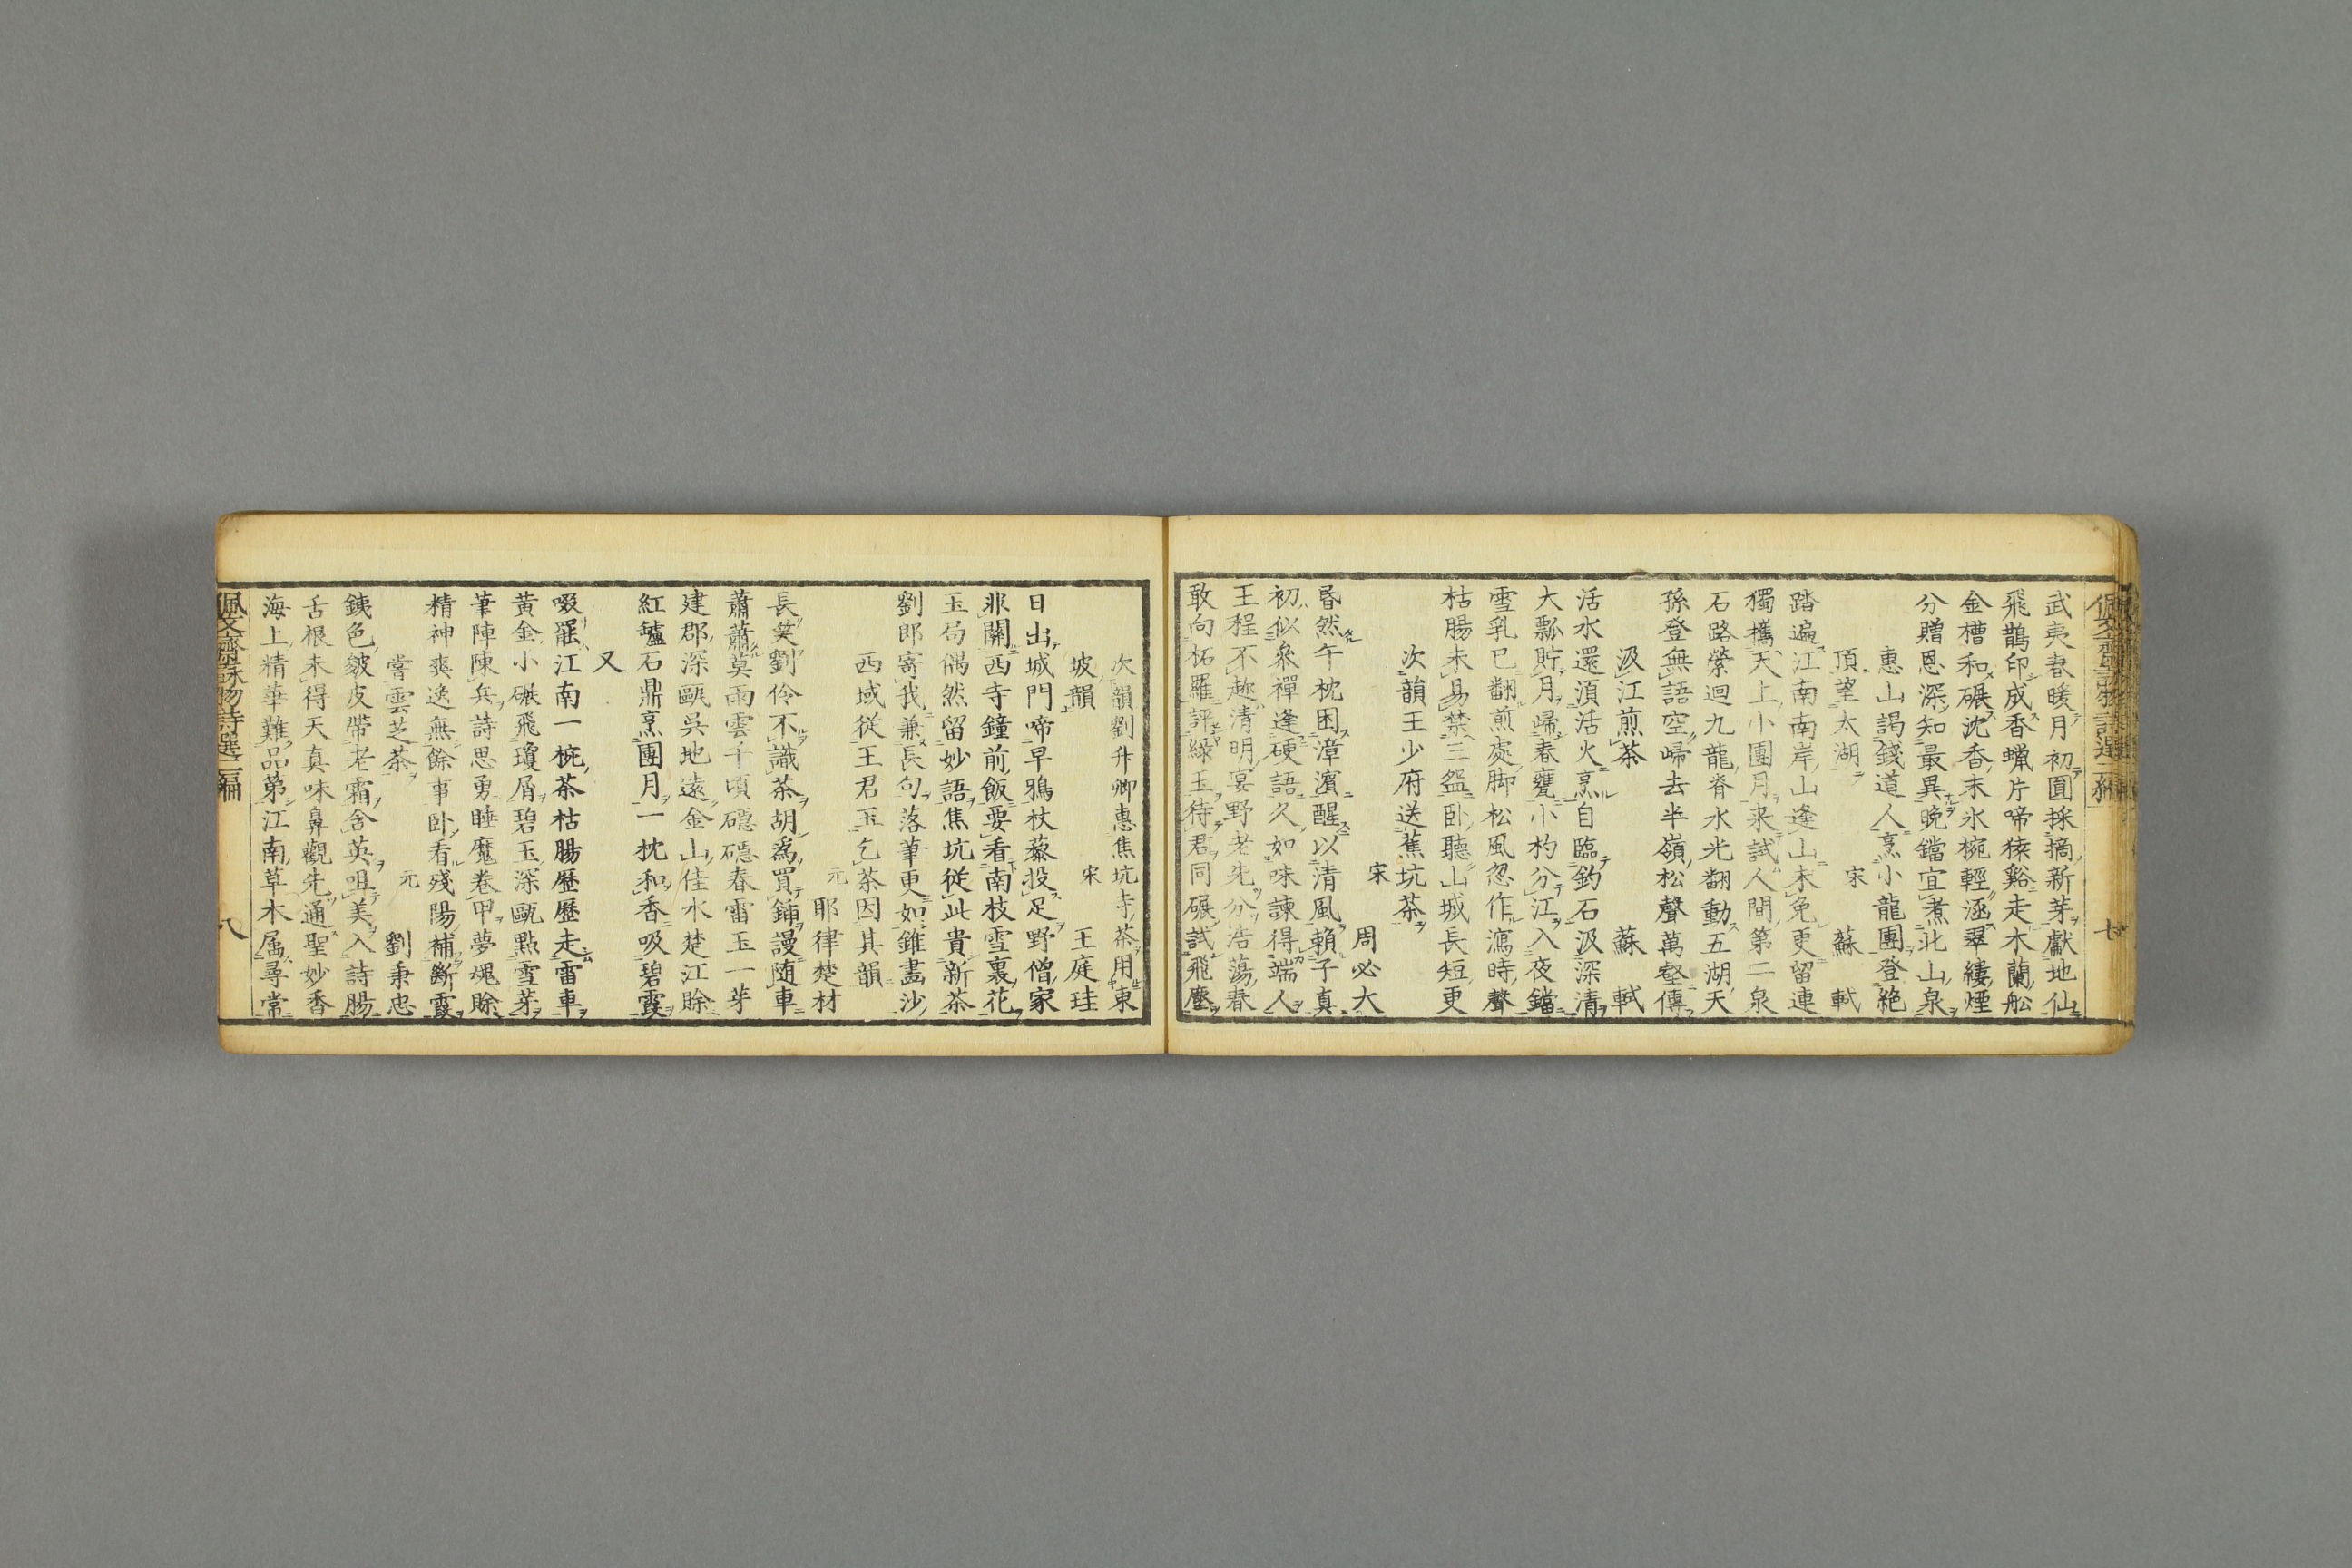 佩文齋詠物詩選二編 七
武夷春暖月初圓採摘新芽獻地仙
飛鵲印成香蝋片啼猿谿走木蘭舩
金槽和碾沈香末氷椀輕涵翠縷煙
分贈恩深知最異晩鐺宜煮北山泉
惠山謁錢道人烹小龍團登絶
頂望太湖 宋 蘇軾
踏遍江南南岸山逢山未免更留連
獨攜天上小團月来試人間第二泉
石路縈迴九龍脊水光翻動五湖天
孫登無語空歸去半嶺松聲萬壑傳
汲江煎茶 蘇軾
活水還須活火烹自臨釣石汲深清
大瓢貯月歸春甕小杓分江入夜鐺
雪乳已翻煎處脚松風忽作瀉時聲
枯腸未易禁三盌臥聽山城長短更
次韻王少府送蕉坑茶
宋 周必大
昏然午枕困漳濱醒以清風賴子真
初似叅禪逢硬語久如味諫得端人
王程不趂清明宴野老先分浩蕩春
敢向柘羅評緑玉待君同碾試飛塵
次韻劉升卿惠焦坑寺茶用東
坡韻 宋 王庭珪
日出城門啼早鴉杖藜投足野僧家
非關西寺鐘前飯要看南枝雪裏花
玉局偶然留妙語焦坑從此貴新茶
劉郎寄我兼長句落筆更如錐畫沙
西域従王君玉乞茶因其韻
元 耶律楚材
長笑劉伶不識茶胡爲買鍤謾随車
蕭蕭莫雨雲千頃隱隱春雷玉一芽
建郡深甌吳地遠金山佳水楚江賒
紅罏石鼎烹團月一枕和香吸碧霞
又
啜罷江南一椀茶枯腸歷歷走雷車
黄金小碾飛瓊屑碧玉深甌點雪芽
筆陣陳兵詩思勇睡魔卷甲夢魂賒
精神爽逸無餘事臥看殘陽補斷霞
嘗雲芝茶 元 劉秉忠
銕色皴皮帶老霜含英咀美入詩腸
舌根未得天真味鼻觀先通聖妙香
海上精華難品第江南草木属尋常
佩文齋詠物詩選二編 八